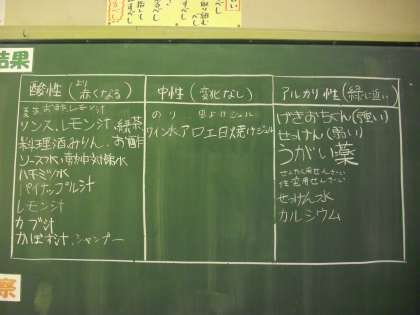 結果
酸性(より赤くなる)
お酢 レモン汁
リンス、レモン汁、緑茶
料理酒、みりん、お酢
ソース水
ハチミツ水
パイナップル汁
レモン汁
カブ汁
かぼす汁、シャンプー
中性(変化なし)
のり
ワイン水、アロエ日焼けジェル
アルカリ性(緑に近い)
げきおちくん(強い)
せっけん(弱い)
うがい薬
せんたく用せんざい
住宅用せんざい
せっけん水
カルシウム
察